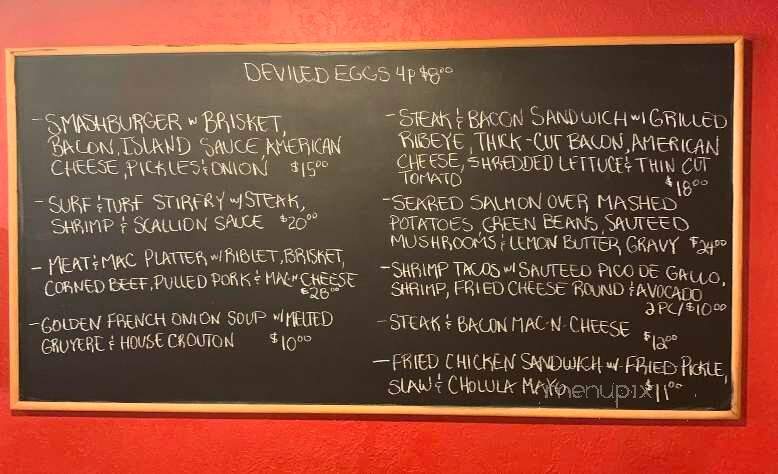 DEVILED EGGS 4p $8.00
- SMASHBURGER w BRISKET,
BACON, ISLAND SAUCE, AMERICAN
CHEESE, PICKLES & ONION $15.00
- SURF & TURF STIRFRY w/ STEAK,
SHRIMP & SCALLION SAUCE $20.00
- MEAT & MAC PLATTER w/ RIBLET, BRISKET,
CORNED BEEF, PULLED PORK & MAC-N-CHEESE
$28.00
- GOLDEN FRENCH ONION SOUP w/ MELTED
GRUYERE & HOUSE CROUTON $10.00
- STEAK & BACON SANDWICH w/ GRILLED
RIBEYE, THICK-CUT BACON, AMERICAN
CHEESE, SHREDDED LETTUCE & THIN CUT
TOMATO $18.00
- SEARED SALMON OVER MASHED
POTATOES, GREEN BEANS, SAUTEED
MUSHROOMS & LEMON BUTTER GRAVY $24.00
- SHRIMP TACOS w/ SAUTEED PICO DE GALLO,
SHRIMP, FRIED CHEESE ROUND & AVOCADO
2PC/$10.00
- STEAK & BACON MAC-N-CHEESE
$12.00
- FRIED CHICKEN SANDWICH w/ FRIED PICKLE,
SLAW & CHOLULA MAYO $11.00
menupix